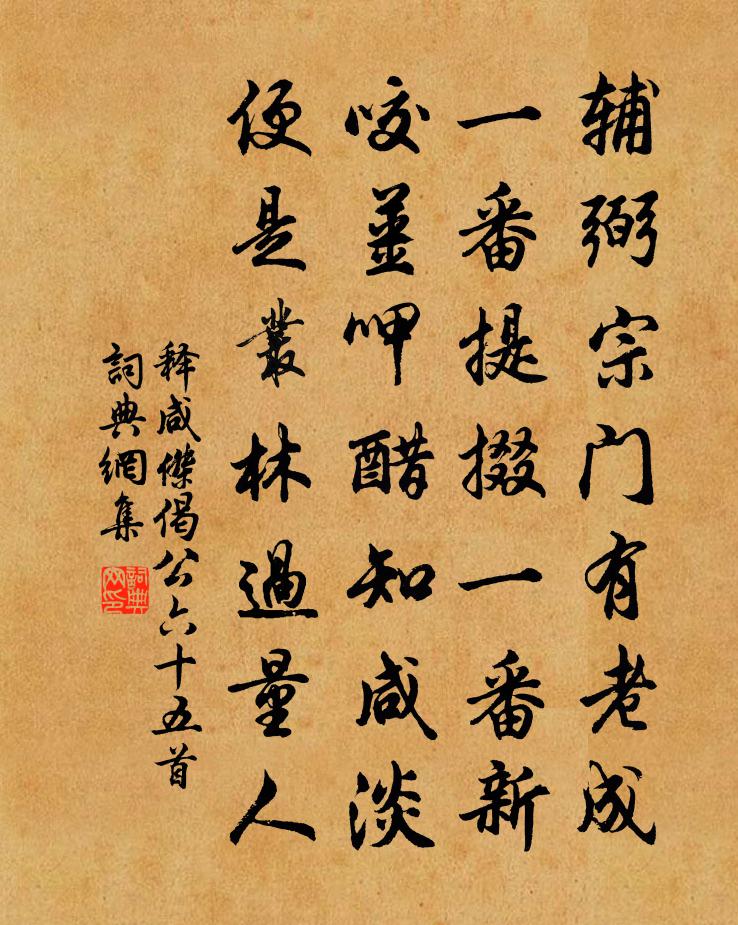 辅弼宗门有老成
一番提掇一番新
咬姜呷醋知咸淡
便是叢林過量人
释咸傑偈公六十五首
詞典網集
詞典网印